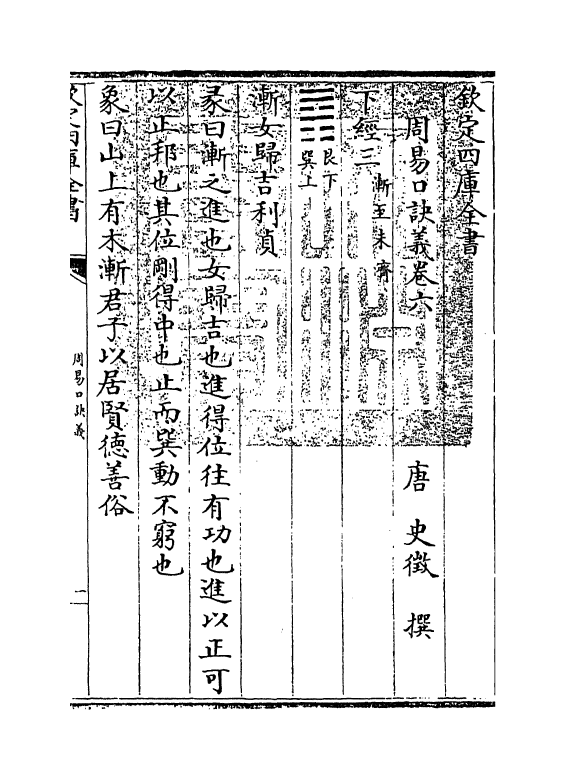 欽定四庫全書
周易口訣義卷六
唐 史徵 撰
下經三 漸至未濟
䷴ 艮下巽上
漸女歸吉利貞
彖曰漸之進也女歸吉也進得位往有功也進以正可
以正邦也其位剛得中也止而巽動不窮也
象曰山上有木漸君子以居賢德善俗
欽定四庫全書
周易口訣義
一